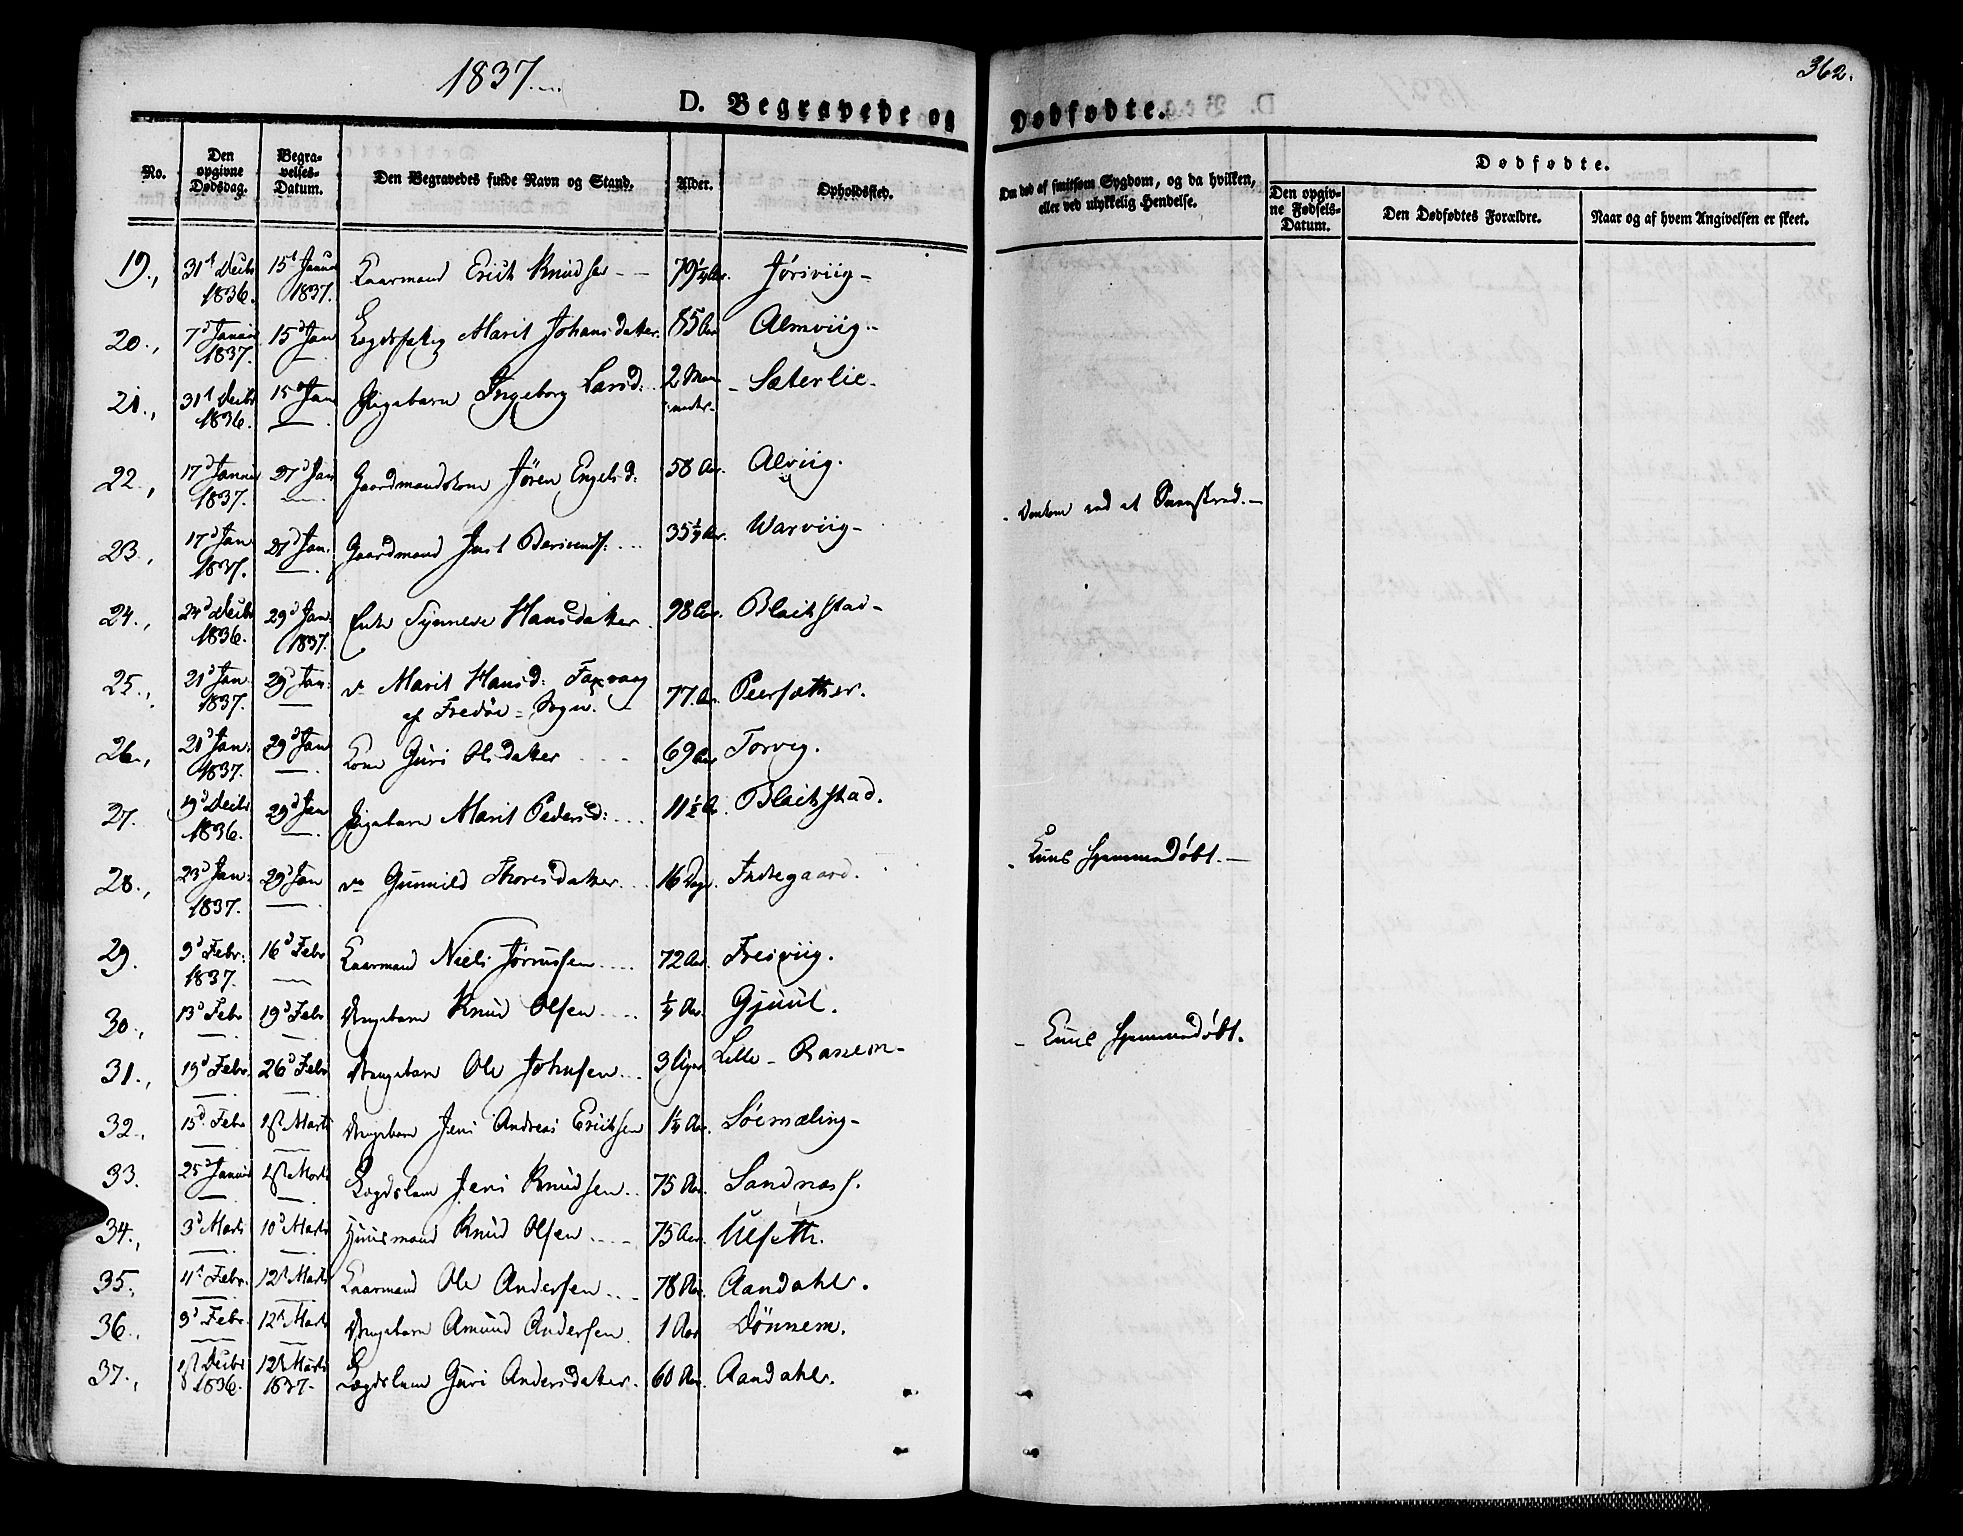 1837.
362.
D. Begravede og Dødfødte.
No.
Den opgivne Dødsdag.
Begravelses-Datum.
Den Begravedes fulde Navn og Stand.
Alder.
Opholdssted.
Om død af smitsom Sygdom, og da hvilken, eller ved ulykkelig Hendelse.
Dødfødte.
Den opgivne Fødsels-Datum.
Den Dødfødtes Forældre.
Naar og af hvem Angivelsen er skeet.
19., 31t Decbr 1836. 15d Januar 1837. Kaarmand Erich Knudsen 79¼ Aar. Jørsviig
20., 7d Januar 1837. 15d Jan Marit Johansdatter 85 Aar Almviig
21., 31t Decbr 1836. 15d Jan Pigebarn Ingeborg Larsd: 2 Maaneder Sæterlie
22., 17d Januar 1837. 27d Jan Gaardmandskone Jøren Engelsd: 58 Aar. Alviig.
23., 17d Jan 1837. 27d Jan. Gaardmand 35¼ Aar. Warviig
24., 24d Decbr 1836. 29d Jan. 1837. Enke Synneve Hansdatter 98 Aar. Blaikstad
25., 21d Jan 1837. 29d Jan: do Marit Hansd: Faxvaag af Fredøe Sogn. 77 Aar. Peersætter.
26., 21d Jan: 1837. 29d Jan Kone Guri Olsdatter 69 Aar Torvig.
27. 19d Decbr 1836. 29d Jan Pigebarn Marit Pedersd: 11½ A. Blaikstad.
28., 23d Jan: 1837. 29d Jan do Gunnild Thoresdatter 16 Dage. Indregaard. Kuns hjemmedøbt.
29. 9d Febr: 1837. 16d Febr Kaarmand Niels 72 Aar. Freiviig.
30., 13d Febr 19d Febr Drengebarn Knud Olsen ¼ Aar. Gjuul.
31., 19d Febr. 26d Febr Drengebarn Ole Johnsen 3 Uger Lille-Ranem Kuns hjemmedøbt.
32., 15d Febr 1st Marts Drengebarn Jens Andreas Erichsen 1¼ Aar. Søemæling
33. 25d Januar 1st Marts Lægdslem Jens Knudsen 75 Aar. Sandness.
34., 3d Marts 10d Marts Huusmand Knud Olsen 75 Aar. Ulseth.
35., 11t Febr. 12t Marts Kaarmand Ole Andersen 78 Aar. Aandahl.
36., 9d Febr. 12t Marts Drengebarn Amund Andersen 1 Aar Dønnem.
37., 1st Decbr 1836. 12t Marts 1837. Lægdslem Guri Andersdatter 60 Aar. Aandahl.